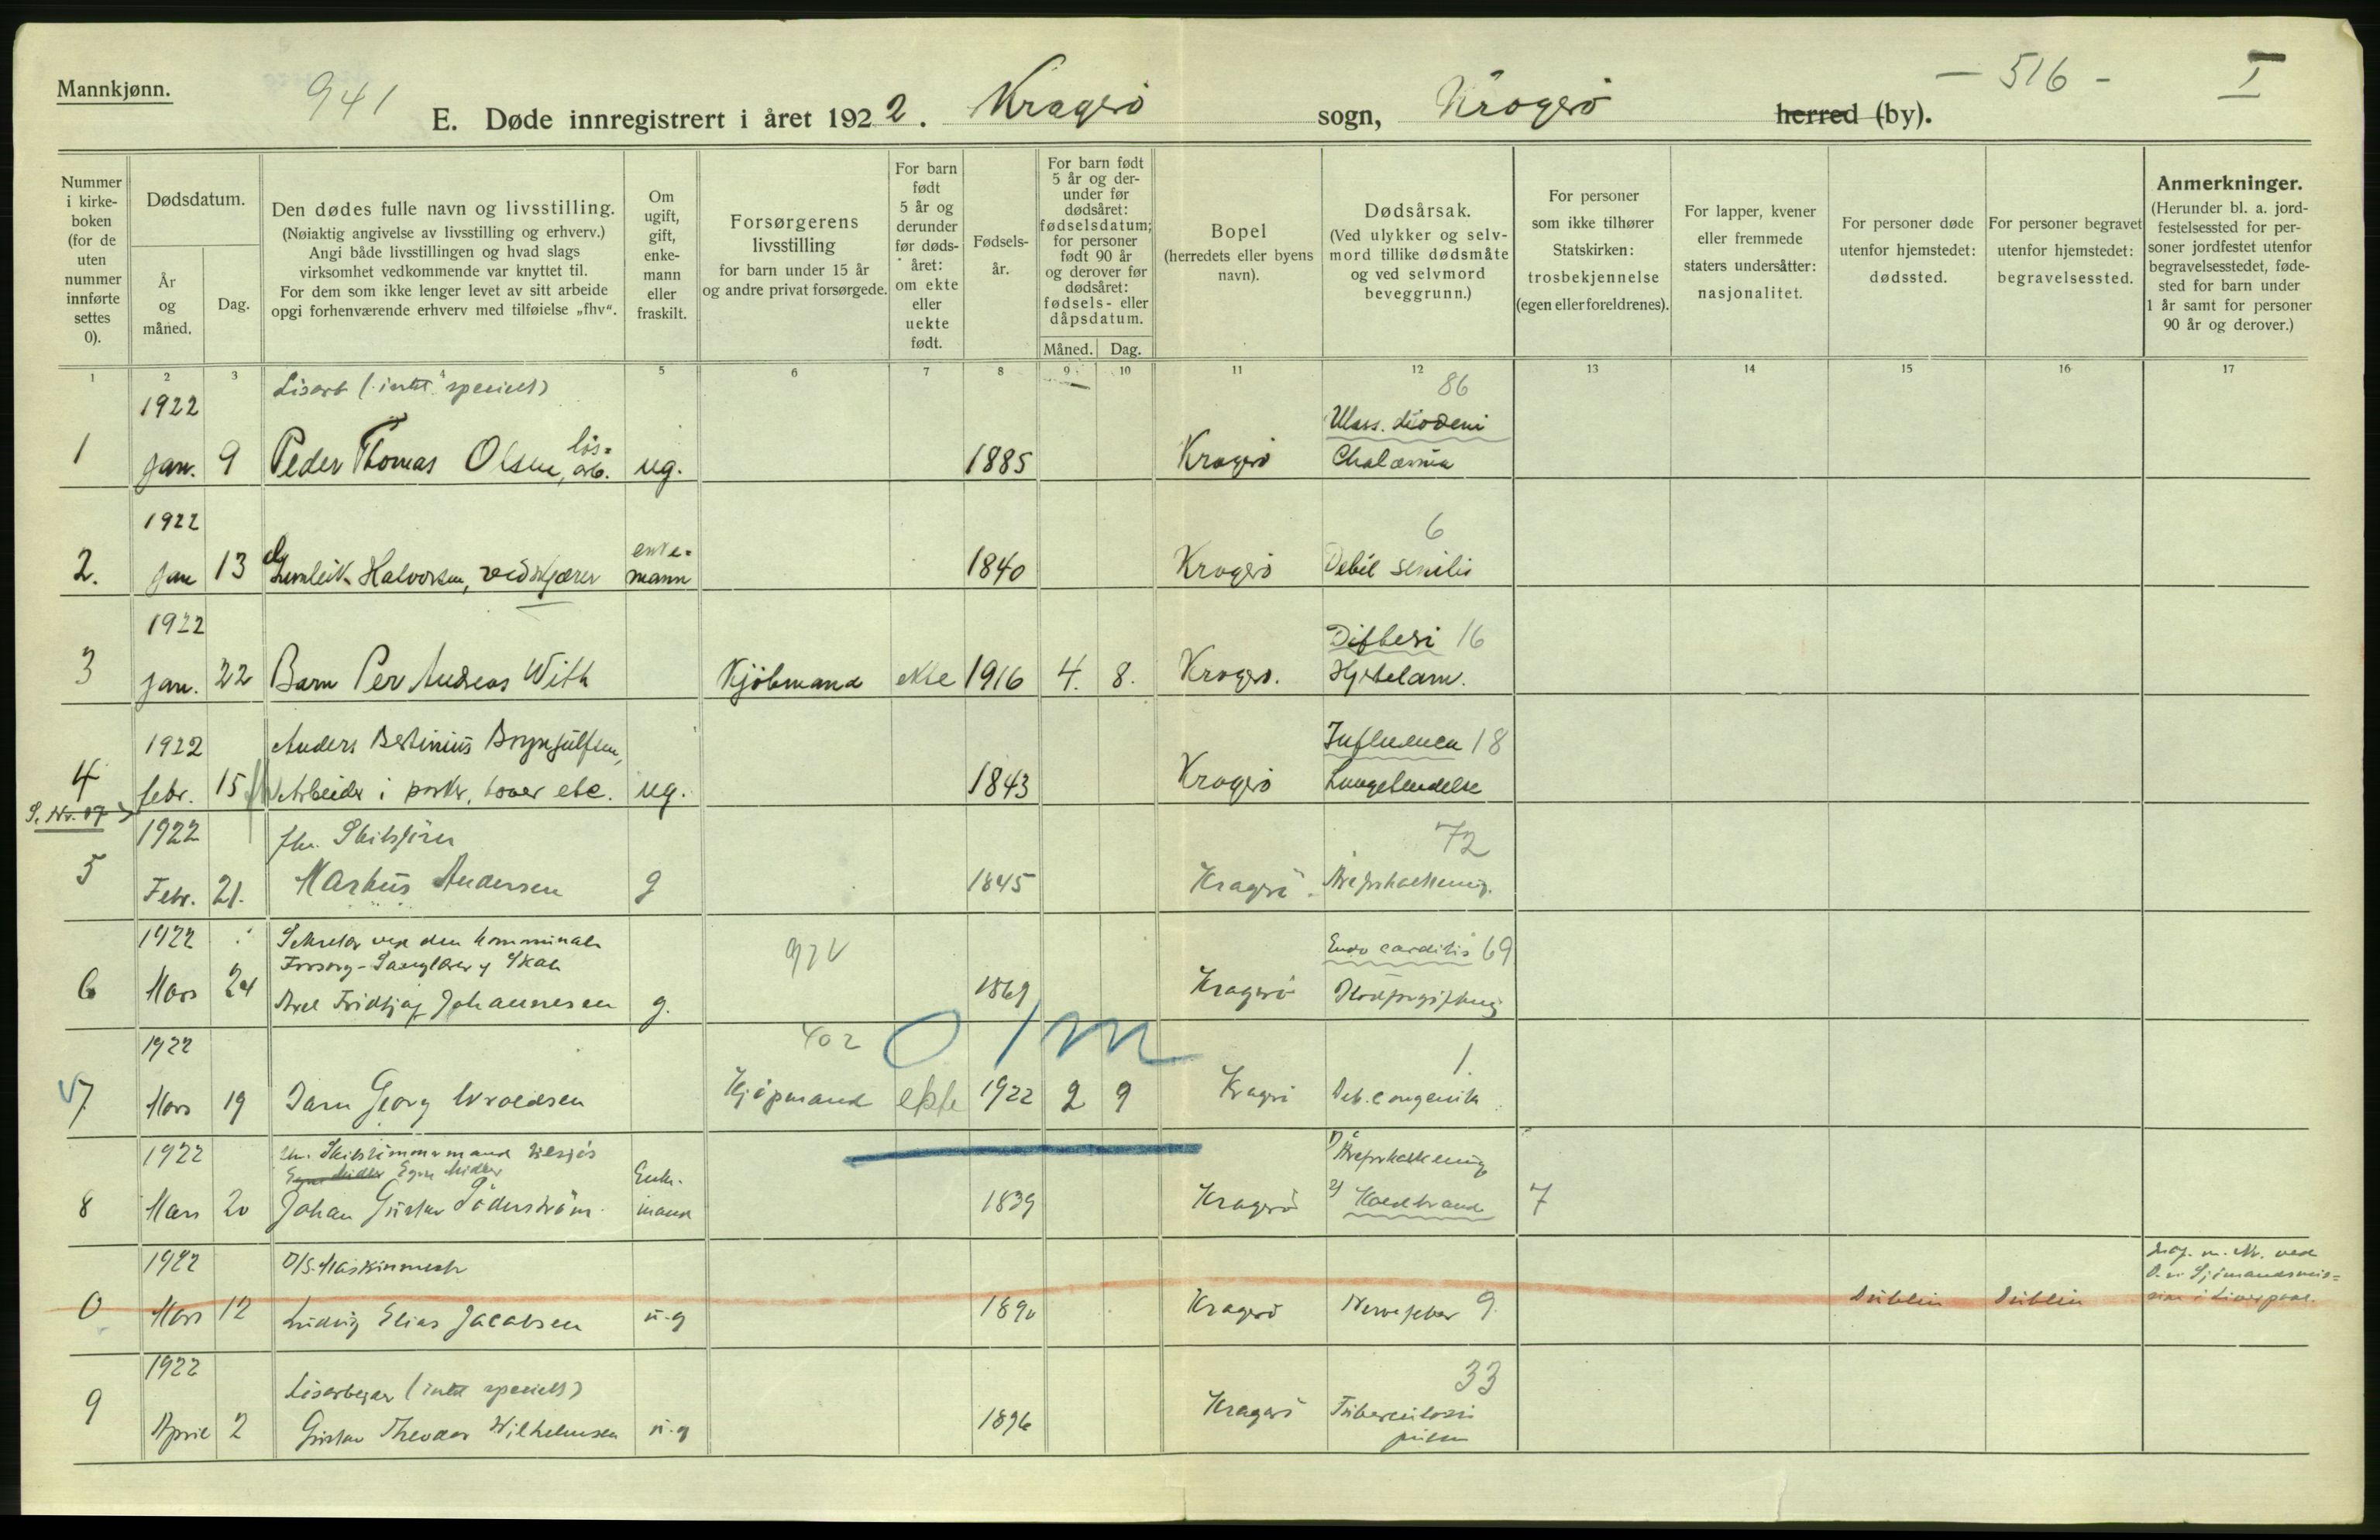 Mannkjønn.
941
— 516 -
I
E. Døde innregistrert i året 1922. Kragerö sogn, Kragerö herred (by).
Nummer i kirke-boken (for de uten nummer innførte settes 0).
Dødsdatum.
År og måned.
Dag.
Den dødes fulle navn og livsstilling.
(Nøiaktig angivelse av livsstilling og erhverv.)
Angi både livsstillingen og hvad slags
virksomhet vedkommende var knyttet til.
For dem som ikke lenger levet av sitt arbeide
opgi forhenværende erhverv med tilføielse „fhv“.
Om ugift, gift, enke-mann eller fraskilt.
Forsørgerens livsstilling
for barn under 15 år
og andre privat forsørgede.
For barn født 5 år og derunder før døds-året: om ekte eller uekte født.
Fødsels-år.
For barn født 5 år og der-under før dødsåret: fødselsdatum; for personer født 90 år og derover før dødsåret: fødsels- eller dåpsdatum.
Måned. Dag.
Bopel
(herredets eller byens navn).
Dødsårsak.
(Ved ulykker og selv-mord tillike dødsmåte og ved selvmord beveggrunn.)
For personer som ikke tilhører Statskirken: trosbekjennelse (egen eller foreldrenes).
For lapper, kvener eller fremmede staters undersåtter: nasjonalitet.
For personer døde utenfor hjemstedet: dødssted.
For personer begravet utenfor hjemstedet: begravelsessted.
Anmerkninger.
(Herunder bl. a. jord-festelsessted for per-soner jordfestet utenfor begravelsesstedet, føde-sted for barn under 1 år samt for personer 90 år og derover.)
1 2 3 4 5 6 7 8 9 10 11 12 13 14 15 16 17
1922 86
1 Jan. 9 Peder Thomas Olsen, løs=arb. ug. 1885 Kragerö
1922 6
2. Jan 13 Halvorsen, vedskjærer enke=mann 1840 Kragerö Debil senilis
1922 Difteri 16
3 Jan. 22 Barn Per Andreas With Kjöbmand ekte 1916 4. 8. Kragerö. Hjertelam.
1922 Anders Bertinius Brynjulfsen, Influenca 18
4 febr. 15 Arbeider i ug. 1843 Kragerö Lungebetendelse
1922 72
5 Febr. 21. Markus Andersen g 1845 Kragerö Åreforkalkning.
1922 Sekretær ved den kommunale Endocarditis 69
6 Mars 24 Johannesen g. 1869 Kragerö Blodforgiftning
1922 402 0/m 1.
7 Mars 19 Barn Georg Wroldsen Kjøpmand ekte 1922 2 9 Kragerö Deb. congenita
1922 Egne Midler 1) Åreforkalkning
8 Mars 20 Johan Gustav Söderström Enke-mand 1839 Kragerö 2) Koldbrand 7
1922
0 Mars 12 Ludvig Elias Jacobsen u.g 1890 Kragerö Nervefeber 9. Dublin Dublin i Liverpool.
1922 Løsarbeider (intet specielt) 33
9 April 2 Gustav Theodor Wilhelmsen u.g 1896 Kragerö Tuberculosis pulm